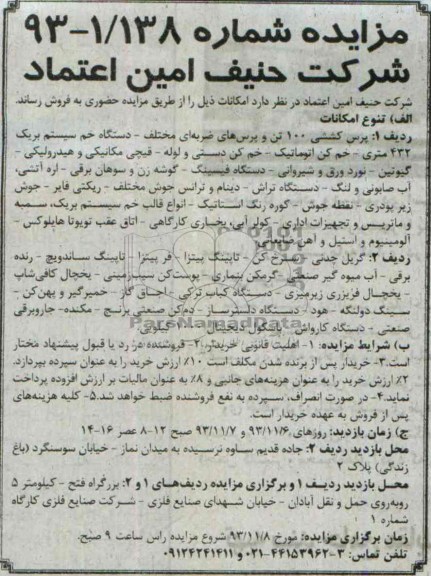 مزایده شماره ۱/۱۳۸-۹۳
شرکت حنیف امین اعتماد
شرکت حنیف امین اعتماد در نظر دارد امکانات ذیل را از طریق مزایده حضوری به فروش رساند.
الف) تنوع امکانات
ردیف ۱: پرس کششی ۱۰۰ تن و پرس‌های ضربه‌ای مختلف - دستگاه خم سیستم بریک
۴۳۲ متری - خم کن اتوماتیک - خم کن دستی و لوله - قیچی مکانیکی و هیدرولیکی -
گیوتین - نورد ورق و شیروانی - دستگاه فیسینگ - گوشه زن و سوهان برقی - اره آتشی،
آب صابونی و لنگ - دستگاه تراش - دینام و ترانس جوش مختلف - ریکتی فایر - جوش
زیر پودری - نقطه جوش - کوره رنگ استاتیک - انواع قالب خم سیستم بریک، سمبه
و ماتریس و تجهیزات اداری - کولر آبی، بخاری کارگاهی - اتاق عقب تویوتا هایلوکس -
آلومینیوم و استیل و آهن ضایعاتی
ردیف ۲: گریل چدنی - سرخ کن - تاپینگ پیتزا - فر پیتزا - تاپینگ ساندویچ - رنده
برقی - آب میوه گیر صنعتی - گرمکن بنماری - پوست‌کن سیب‌زمینی - یخچال کافی‌شاپ
- یخچال فریزری زیرمیزی - دستگاه کباب ترکی - اجاق گاز - خمیرگیر و پهن‌کن -
سینک دولگنه - هود - دستگاه دلسترساز - دم‌کن صنعتی برنج - مکنده - جاروبرقی
صنعتی - دستگاه کارواش - پاتنگول
ب) شرایط مزایده: ۱- اهلیت قانونی خریدار ۲- فروشنده در رد یا قبول پیشنهاد مختار
است ۳- خریدار پس از برنده شدن مکلف است ۱۰٪ ارزش خرید را به عنوان سپرده بپردازد.
۲٪ ارزش خرید را به عنوان هزینه‌های جانبی و ۸٪ به عنوان مالیات بر ارزش افزوده پرداخت
نماید. ۴- در صورت انصراف، سپرده به نفع فروشنده ضبط خواهد شد. ۵- کلیه هزینه‌های
پس از فروش به عهده خریدار است.
ج) زمان بازدید: روزهای ۹۳/۱۱/۶ و ۹۳/۱۱/۷ صبح ۱۲-۸ عصر ۱۶-۱۴
محل بازدید ردیف ۲: جاده قدیم ساوه نرسیده به میدان نماز - خیابان سوسنگرد (باغ
زندگی) پلاک ۲
محل بازدید ردیف ۱ و برگزاری مزایده ردیف‌های ۱ و ۲: بزرگراه فتح - کیلومتر ۵
روبه‌روی حمل و نقل آبادان - خیابان شهدای صنایع فلزی - شرکت صنایع فلزی کارگاه
شماره ۱
زمان برگزاری مزایده: مورخ ۹۳/۱۱/۸ شروع مزایده راس ساعت ۹ صبح.
تلفن تماس: ۳-۴۴۱۵۳۹۶۲-۰۲۱ و ۰۹۱۲۴۲۴۱۴۱۱